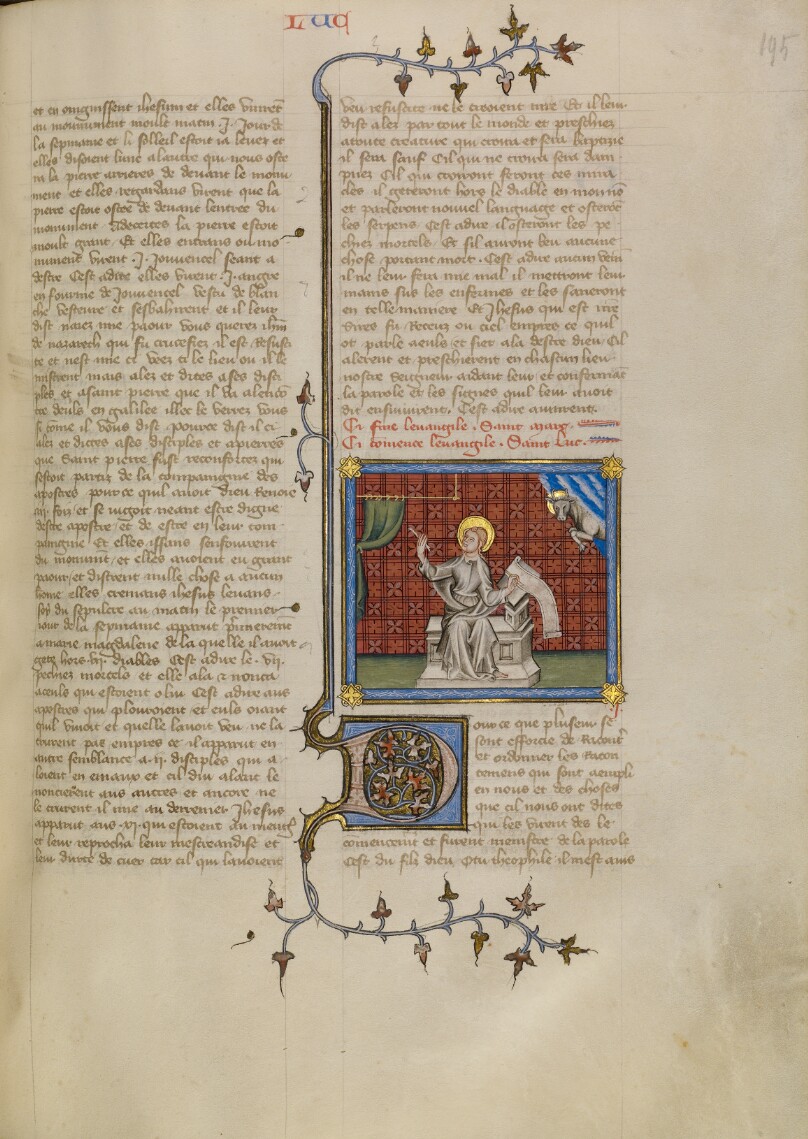 LUC
195
et en oingnissent ihesum et elles vinrent
au monument moult matin .J. Jour de
la sepmaine et li solleil estoit ia levez et
elles disoient lune alautre qui nous oste
ra la pierre arrieres de devant le monu
ment et elles regardans virent que la
pierre estoit ostee de devant lentree du
monument Adecertes la pierre estoit
moult grant. Et elles entrans ou mo
nument virent .J. Jouvencel seant a
destre Cest adire elles virent .J. angre
en fourme de Jouvencel vestu de blan
che vesteure et sesbahirent et il leur
dist naiez mie paour vous querez ihm
de nazareth qui fu crucefiez il est Resusci
te et nest mie ci veez ci le lieu ou il le
mistrent mais alez et dites a ses disci
ples et a saint pierre que il va alenco
tre deuls en galilee illec le verrez vous
si come il vous dist. pource dist il ci
alez et dictes a ses disciples et a pierres
que Saint pierre fust reconfortez qui
sestoit partiz de la compaingnie des
apostres pour ce quil avoit dieu Renoie
.iii. fois et se iugoit neant estre digne
destre apostre et de estre en leur com
paingnie Et elles issans senfouirent
du monument et elles avoient eu grant
paour et distrent nulle chose a aucun
home elles cremans ihesus levans
soy du sepulcre au matin le premier
iour de la sepmaine apparut premierement
a marie magdalene de la quelle il avoit
gete hors .vii. diables Cest adire le .vii.
pechiez mortels et elle ala et nonca
a ceuls qui estoient o lui Cest adire aus
apostres qui plouroient et euls oiant
quil vivoit et quelle lavoit veu ne la
crurent pas empres ce il apparut en
autre semblance a .ii. disciples qui a
loient en emaux et cil dui alant le
noncierent aus autres et ancore ne
le crurent il mie au derrenier Ihesus
apparut aus .xi. qui estoient au mengier
et leur reprocha leur mescreandise et
leur durte de cuer car cil qui lavoient
veu resuscite ne le creoient mie Et il leur
dist alez par tout le monde et preschiez
a toute creature qui croira et sera baptizie
il sera sauf Cil qui ne croira sera dam
pnez Cil qui croiront feront ces mira
cles il geteront hors le diable en mon nom
et parleront nouvel language et osteront
les serpens Cest adire il osteront les pe
chiez mortels Et sil avront beu aucune
chose portant mort. Cest adire aucun venin
il ne leur fera mie mal il mettront leur
mains sus les enfermes et les saneront
en telle maniere Et Ihesus qui est nostre
sires fu Receuz ou ciel empres ce quil
ot parle a euls et siet a la destre dieu Cil
alerent et preschierent en chascun lieu
nostre Seigneur aidant leur et confermant
la parole et les signes quil leur avoit
dit ensuivirent. Cest adire avinrent.
Ci fine levangile. Saint marc.
Ci comence levangile. Saint Luc.
Pour ce que pluseur se
sont efforcie de Raconter
et ordonner les Racon
temens qui sont aempli
en nous et des choses
que cil nous ont dites
qui les virent des le
comencent et furent menistre de la parole
Cest du fils dieu O tu theophile il mest avis